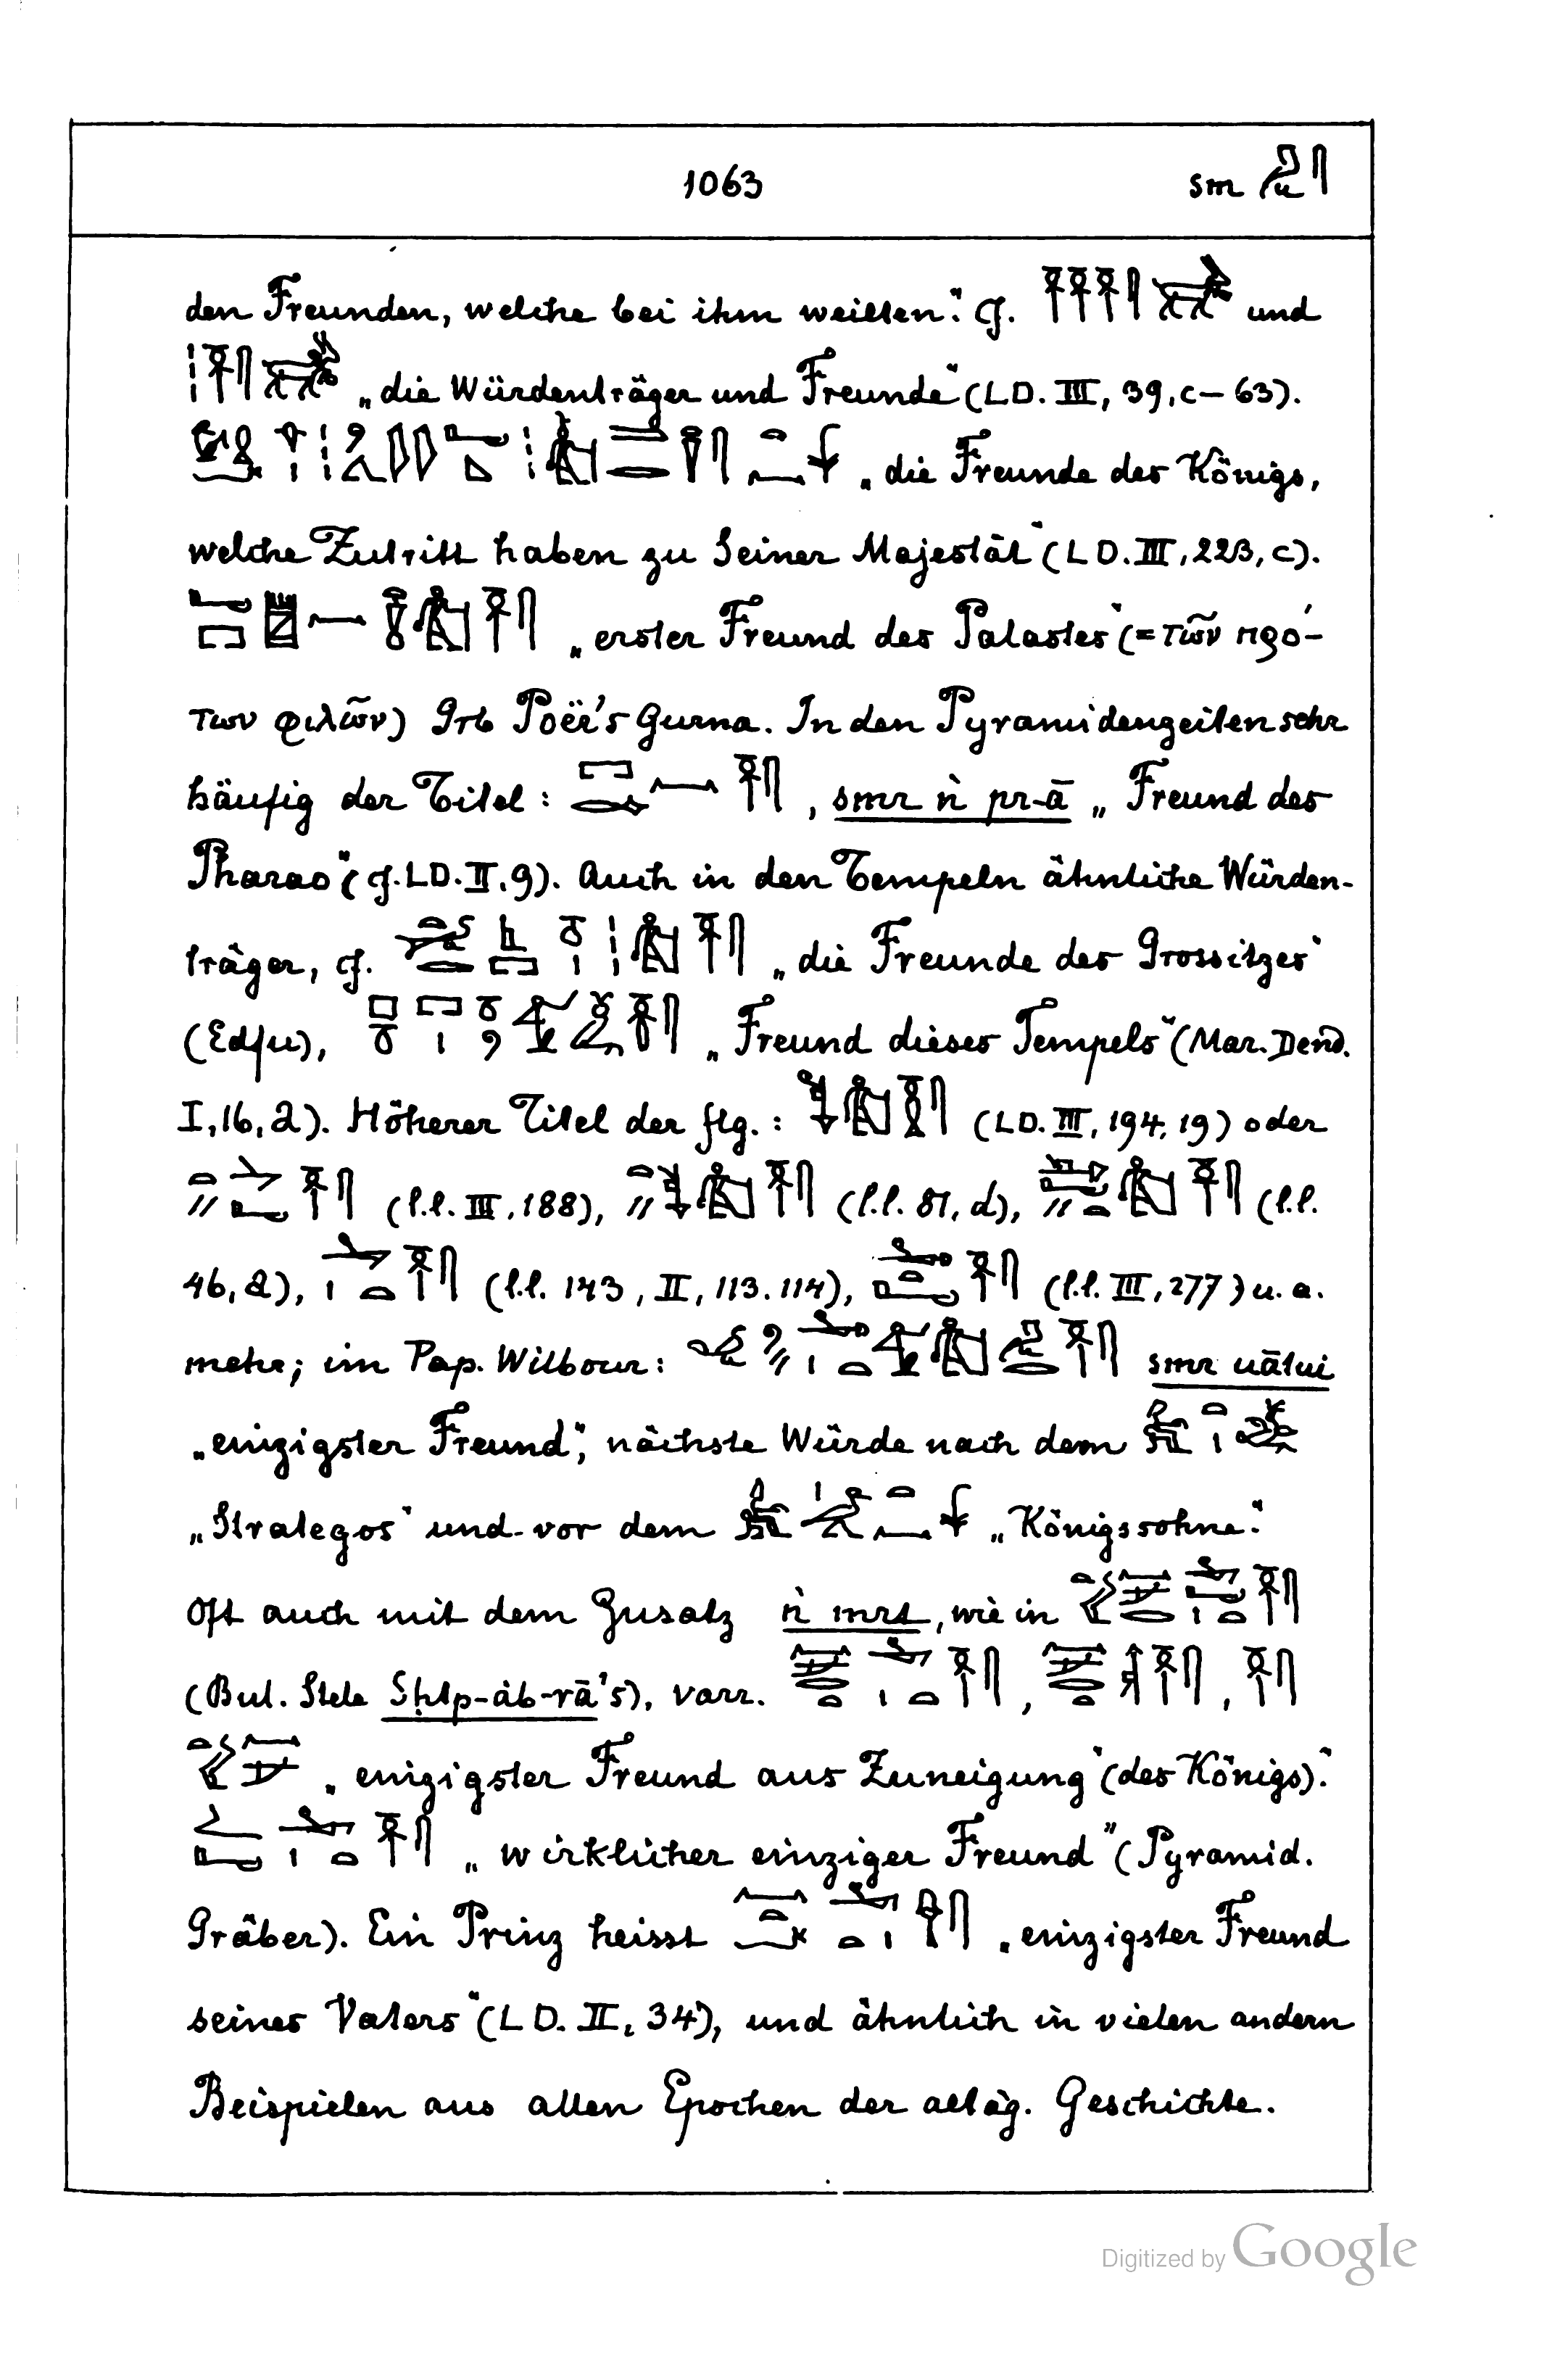 1063 sm
den Freunden, welche bei ihm weilten." cf. und
„die Würdenträger und Freunde" (LD. III, 39, c – 63).
„die Freunde des Königs,
welche Zutritt haben zu Seiner Majestät" (LD. III, 223, c).
„erster Freund des Palastes" (= τῶν πρό-
των φιλῶν) Grb Poër's Gurna. In den Pyramidenzeiten sehr
häufig der Titel: , smr ǹ pr-ā „Freund des
Pharao" (cf. LD. II, 9). Auch in den Tempeln ähnliche Würden-
träger, cf. „die Freunde des Grossitzes"
(Edfu), „Freund dieses Tempels" (Mar. Dend.
I, 16, a). Höherer Titel der flg.: (LD. III, 194, 19) oder
(l.l. III, 188), (l.l. 81, d), (l.l.
46, a), (l.l. 143, II, 113. 114), (l.l. III, 277) u. a.
mehr; im Pap. Wilbour: smr uātui
„einzigster Freund", nächste Würde nach dem
„Strategos" und vor dem „Königssohne."
Oft auch mit dem Zusatz ǹ mrt, wie in
(Bul. Stele Sḥtp-àb-rā's), varr. , ,
„einzigster Freund aus Zuneigung (des Königs)."
„wirklicher einziger Freund" (Pyramid.
Gräber). Ein Prinz heisst „einzigster Freund
seines Vaters" (LD. II, 34), und ähnlich in vielen andern
Beispielen aus allen Epochen der altäg. Geschichte.
Digitized by Google